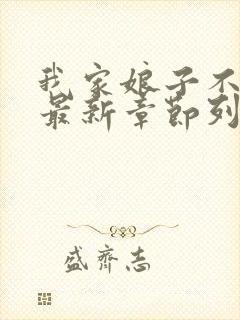 我家娘子不
最新章节列
盛齐志